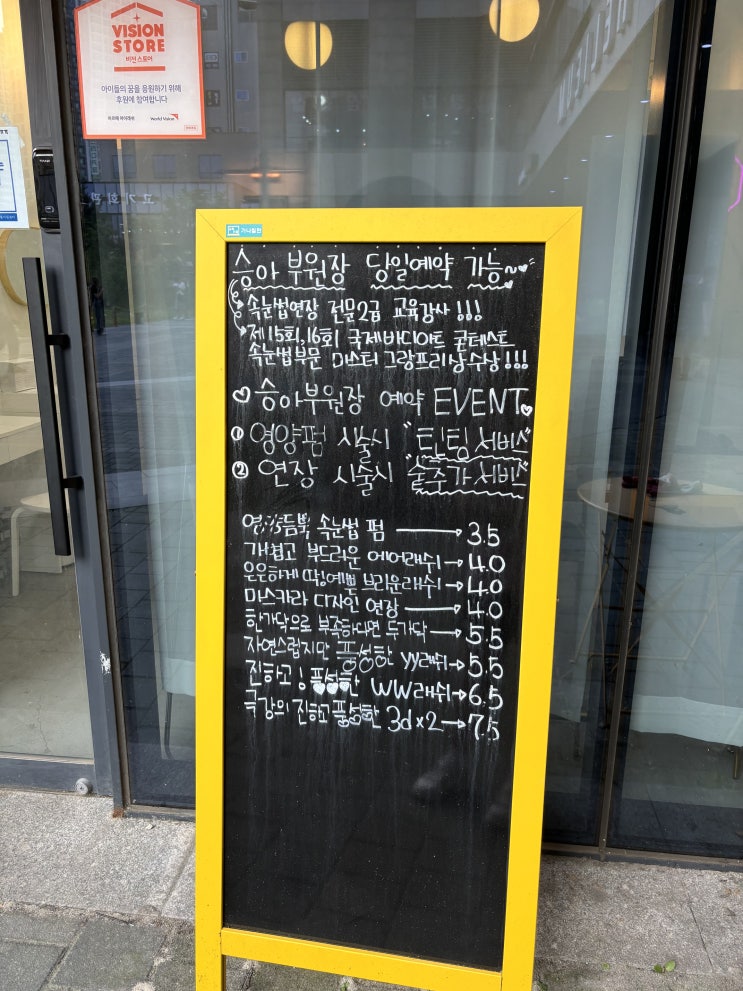 VISION
STORE
비전스토어
아이들의 꿈을 응원하기 위해
후원에 참여합니다
World Vision
가나칠판
승아 부원장 당일예약 가능~♥
속눈썹연장 전문2급 교육강사!!!
제15회,16회 국제바디아트 콘테스트
속눈썹부문 마스터 그랑프리상수상!!!
♡승아부원장 예약 EVENT♥
① 영양펌 시술시 "틴팅서비스"
② 연장 시술시 "숱추가서비스"
속눈썹 펌 → 3.5
가볍고 부드러운 에어래쉬 → 4.0
은은하게 딱!예쁜 브라운래쉬 → 4.0
마스카라 디자인 연장 → 4.0
한가닥으로 부족하다면 두가닥 → 5.5
자연스럽지만 풍성한 yy래쉬 → 5.5
진하고! 풍성한 WW래쉬 → 6.5
극강의 진하고풍성한 3d×2 → 7.5